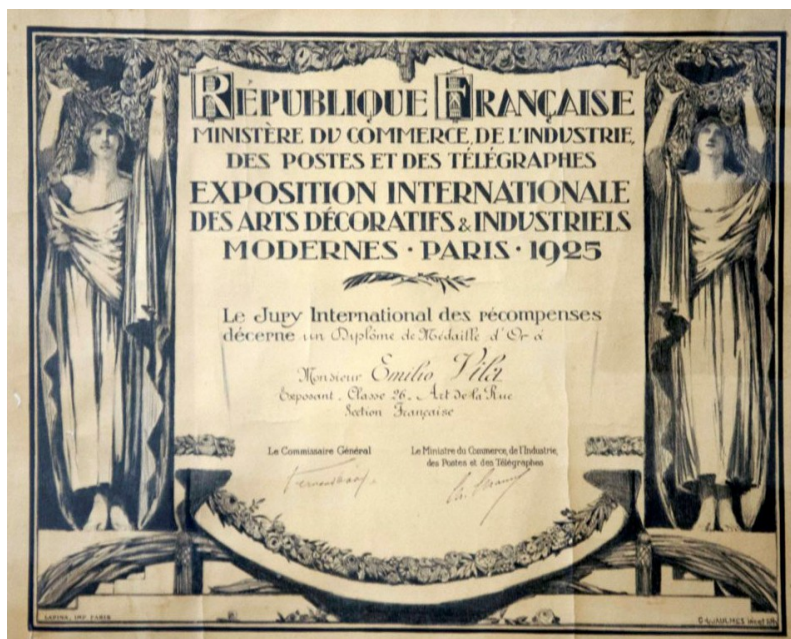 RÉPUBLIQUE FRANÇAISE
MINISTÈRE DU COMMERCE, DE L'INDVSTRIE,
DES POSTES ET DES TÉLÉGRAPHES
EXPOSITION INTERNATIONALE
DES ARTS DÉCORATIFS & INDVSTRIELS
MODERNES · PARIS · 1925
Le Jury International des récompenses
décerne un Diplôme de Médaille d'Or à
Monsieur Emilio Vilà
Exposant. Classe 26. Art de la Rue
Section Française
Le Commissaire Général
Le Ministre du Commerce, de l'Industrie,
des Postes et des Télégraphes
IMP PARIS